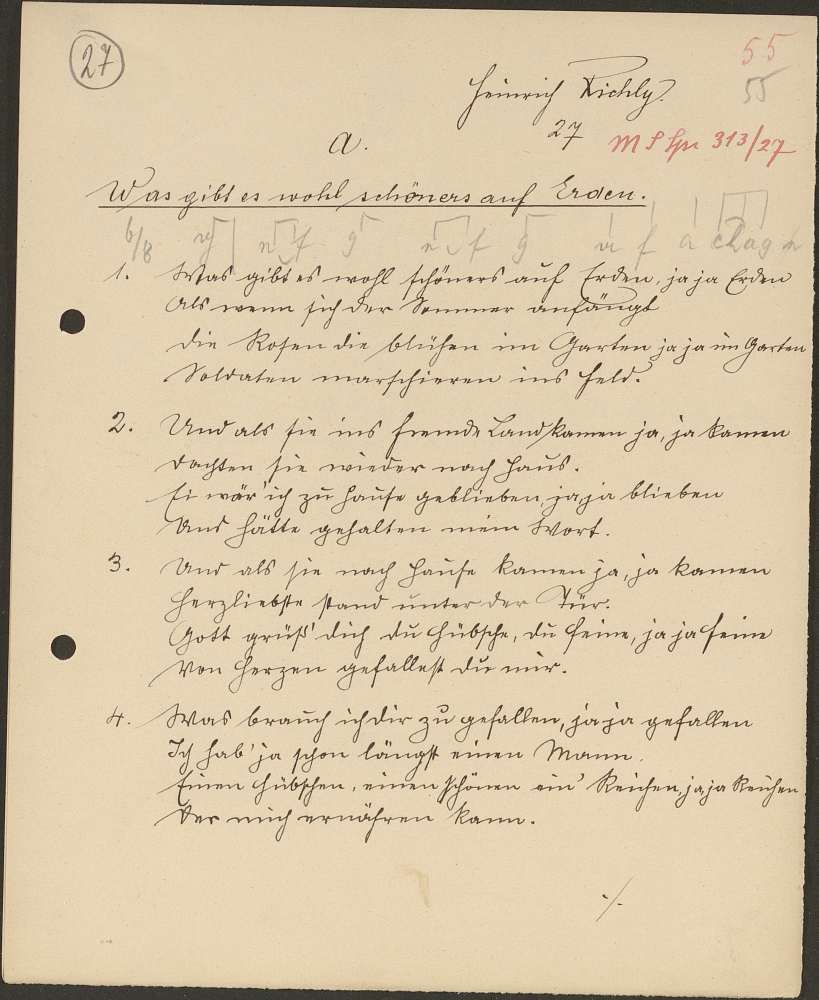 27
55
55
Heinrich Richly.
27
a.
MS Spr 313/27
Was gibt es wohl schöners auf Erden.
6/8
1. Was gibt es wohl schöners auf Erden, ja ja Erden
Als wenn sich der Sommer anfängt
die Rosen die blühen im Garten ja ja im Garten
Soldaten marschieren ins Feld.
2. Und als sie ins fremde Land kamen ja, ja kamen
dachten sie wieder nach Haus.
Ei wär' ich zu Hause geblieben, ja, ja blieben
Und hätte gehalten mein Wort.
3. Und als sie nach Hause kamen ja, ja kamen
Herzliebste stand unter der Tür.
Gott grüß' dich du Hübsche, du Feine, ja ja Feine
Von Herzen gefallest du mir.
4. Was brauch ich dir zu gefallen, ja ja gefallen
Ich hab' ja schon längst einen Mann.
Einen Hübschen, einen Schönen ein' Reichen, ja ja Reichen
Der mich ernähren kann.
./.